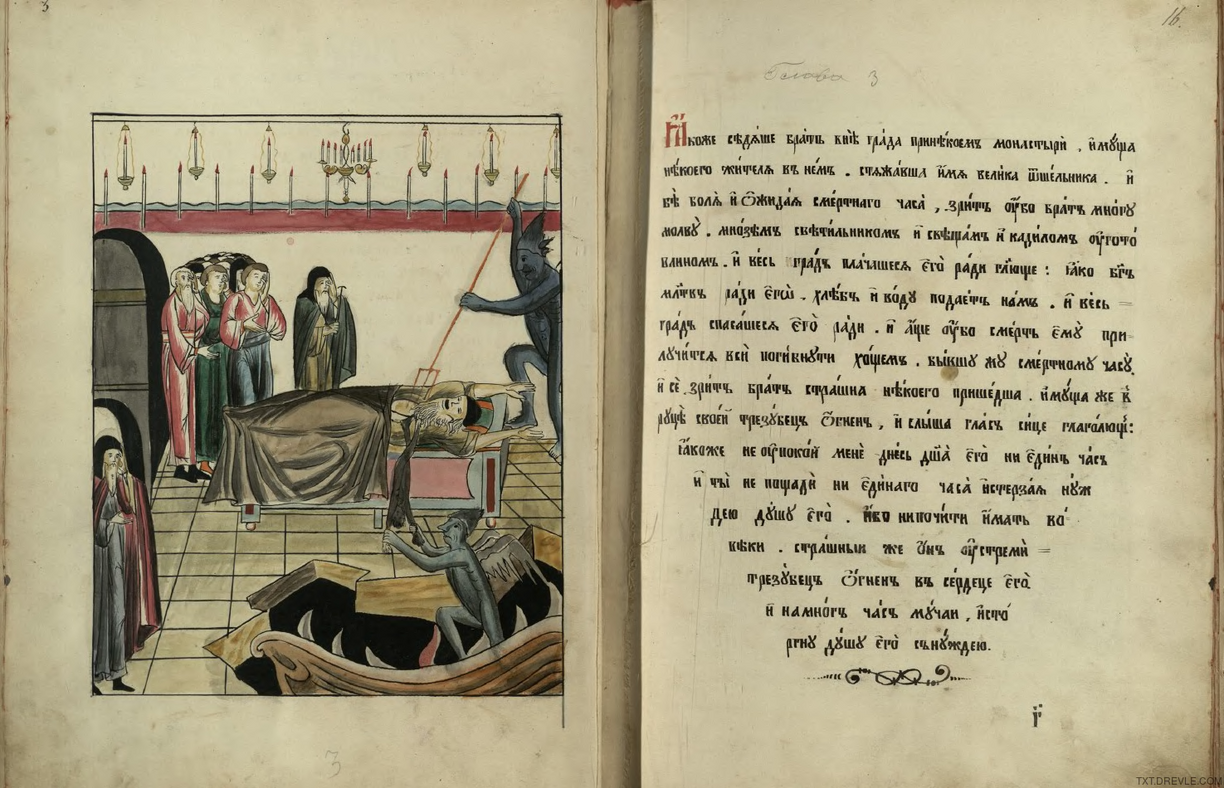 3
16.
Глава 3
Ꙗкоже сѣдѧше бра́тъ внѣ̀ гра́да принѣ́коемъ монасты́ри . и҆мꙋ́ща
нѣ́коего жи́телѧ въ не́мъ . стѧжа́вша и҆́мѧ вели́ка ѿше́льника . и҆
бѣ̀ бо́лѧ и҆ ѡ҆жида́ѧ сме́ртнаго часа̀ , зри́тъ ᲂу҆́бо бра́тъ мно́гꙋ
молвꙋ̀ . мно́зѣмъ свѣти́льникомъ и҆ свѣща́мъ и҆ кади́ломъ ᲂу҆гото́
влиномъ . и҆ ве́сь гра́дъ пла́чашесѧ є҆гѡ̀ ра́ди гл҃юще : ꙗ҆́ко бг҃ъ
мл҃твъ ра́ди є҆гѡ̀ . хлѣ́бъ и҆ во́дꙋ подае́тъ на́мъ . и҆ ве́сь =
гра́дъ спаса́шесѧ є҆го̀ ра́ди . и҆ а҆́ще ᲂу҆́бо сме́рть є҆мꙋ̀ при-
лꙋчи́тсѧ всѝ поги́бнꙋти хо́щемъ . бы́вшꙋ жꙋ сме́ртномꙋ ча́сꙋ.
и҆ сѐ зри́тъ бра́тъ стра́шна нѣ́коего прише́дша . и҆мꙋ́ща же в̾
рꙋцѣ̀ свое́й трезꙋ́бецъ ѻ҆́гненъ , и҆ слы́ша гла́съ си́це глаго́лющь :
ꙗ҆́коже не ᲂу҆поко́й менѐ дне́сь дш҃а̀ є҆гѡ̀ ни є҆ди́нъ ча́съ
и҆ ты̀ не пощадѝ ни є҆ди́наго часа̀ и҆стерза́ѧ нꙋж
де́ю дꙋ́шꙋ є҆го̀ . и҆́бо нипочи́ти и҆́мать во́
вѣки . стра́шныи же ѻ҆́нъ ᲂу҆стремѝ =
трезꙋ́бецъ ѻ҆́гненъ въ се́рдеце є҆гѡ̀
и҆ намно́гъ ча́съ мꙋ́чаи , и҆сто́
ргнꙋ дꙋ́шꙋ є҆гѡ̀ сънꙋ́ждею.
г҃
3
TXT.DREVLE.COM